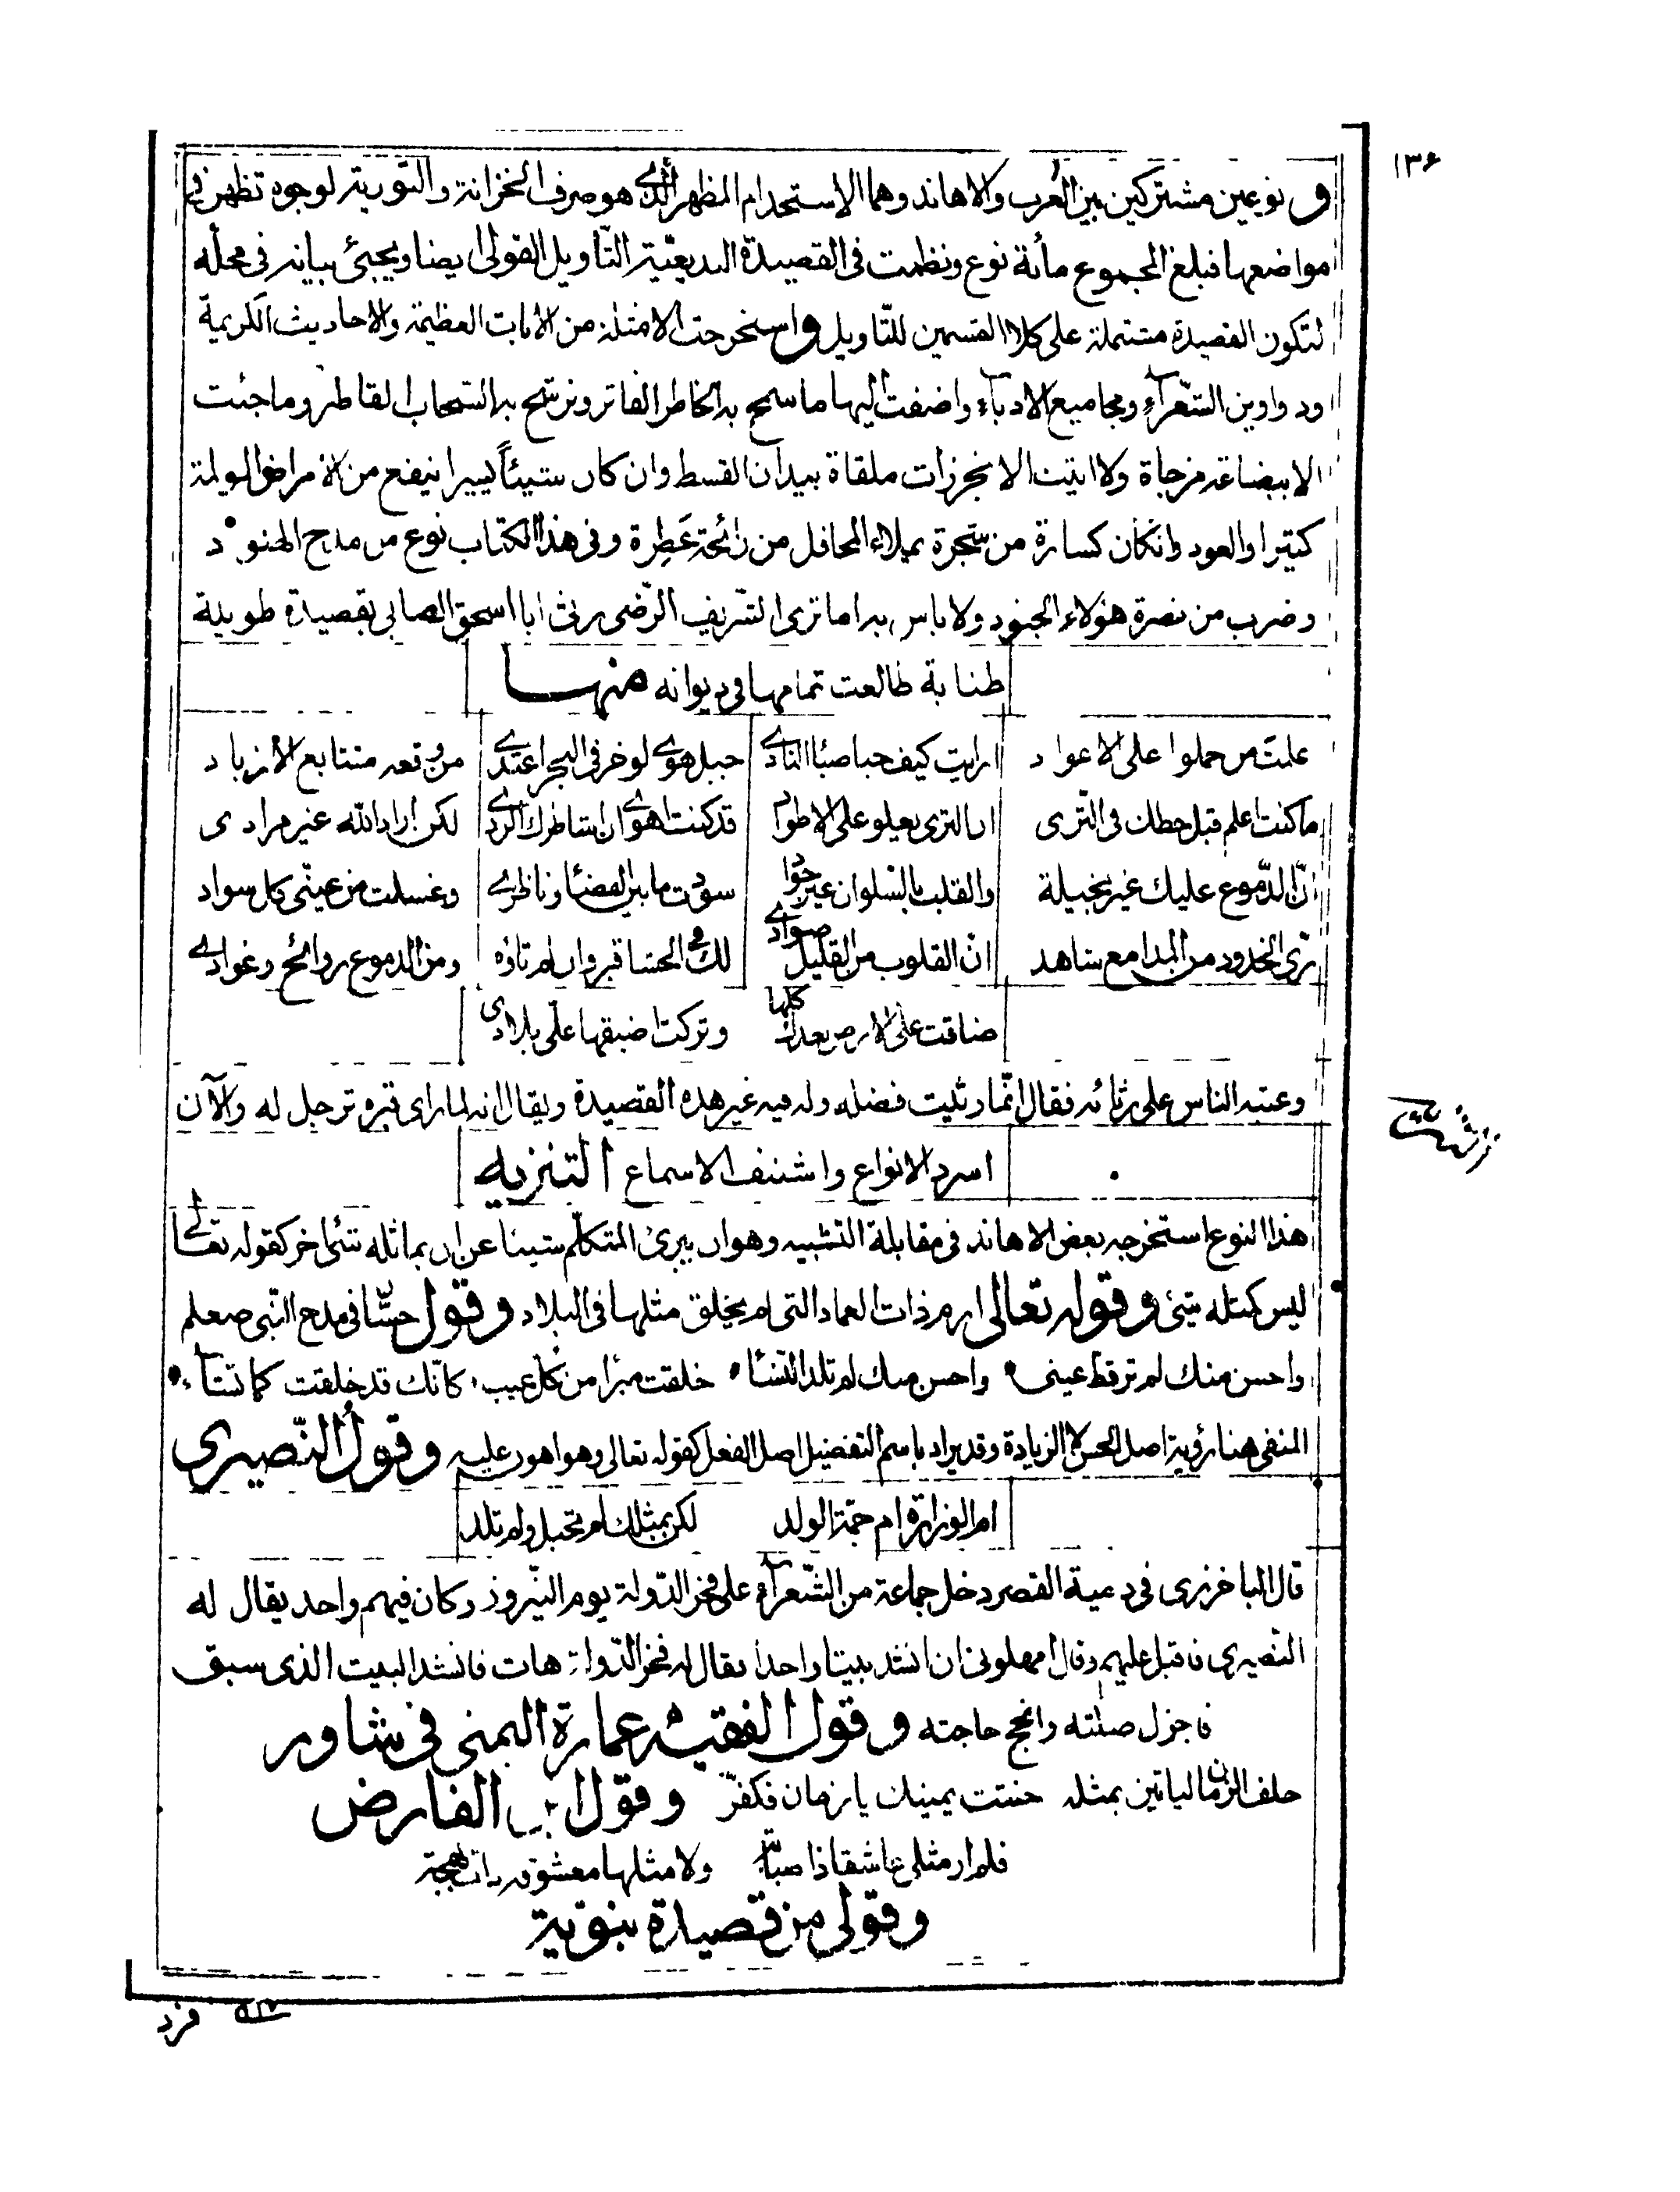 ١٣۶
و نوعين مشتركين بين العرب والاهاند وهما الاستخدام المظهر الذى هو صرف الخزانة والتورية لوجوه تظهر فى
مواضعها فبلغ المجموع مأية نوع ونظمت فى القصيدة البديعيّة التّاويل القولى ايضا ويجيئ بيانه فى محله
لتكون القصيدة مشتملة على كلا القسمين للتّاويل واستخرجت الامثلة من الايات العظيمة والاحاديث الكريمة
ودواوين الشّعرآء ومجاميع الادبآء واضفت اليها ما سمح به الخاطر الفاتر وترشح به السّحاب القاطر وما جئت
الا ببضاعة مزجاة ولا اتيت الا بخرزات ملقاة بيد ان القسط وان كان شيئاً يسيرا ينفع من الامراض المولمة
كثيرا والعود وانكان كسارة من شجرة يملاء المحافل من رائحة عَطِرة وفى هذا الكتاب نوع من مدح الهنود
وضرب من نصرة هؤلاء الجنود ولا باس به اما ترى الشّريف الرّضى رثى ابا اسحق الصابى بقصيدة طويلة
طنابة طالعت تمامها فى ديوانه منهـــا
علمتَ من حملوا على الاعواد ارايت كيف خبا ضيا النادى جبل هوى لو خر فى البحر اغتدى من وقعه متتابع الازباد
ما كنت اعلم قبل حطك فى الثّرى ان الثرى يعلو على الاطواد قد كنت اهوى ان اشاطرك الردى لكن اراد الله غير مرادى
انّ الدّموع عليك غير بخيلة والقلب بالسّلوان غير جواد سودت ما بين الفضا وناظرى وغسلت من عينّى كل سواد
ترى الخدود من المدامع شاهد انّ القلوب من الغليل صوادى لك فى الحشا قبر وان لم تاوه ومن الدموع روائح وغوادى
ضاقت علىّ الارض بعدك كلها وتركت اضيقها علّى بلادى
وعتبه الناس على رثائه فقال انّما رثيت فضله وله فيه غير هذه القصيدة ويقال انه لما راى قبره ترجل له والآن
اسرد الانواع واشنف الاسماع التنزيه
هذا النوع استخرجه بعض الاهاند فى مقابلة التّشبيه وهو ان يبرئ المتكلّم شيئا عن ان يماثله شئ اخر كقوله تعالى
ليس كمثله شئ وقوله تعالى ارم ذات العماد التى لم يخلق مثلها فى البلاد وقول حسّان فى مدح النّبى صعلم
واحسن منك لم تر قط عينى واحسن منك لم تلد النّسآ خلقت مبرا من كلّ عيب كانّك قد خلقت كما تشآء
المنفى هنا رؤية اصل الحسن لا الزيادة وقد يراد باسم التفضيل اصل الفعل كقوله تعالى وهو اهون عليه وقول النّصيرى
ام الوزارة ام جمّة الولد لكن بمثلك لم تحبل ولم تلد
قال الباخرزى فى دمية القصر دخل جماعة من الشّعرآء على فخر الدّولة يوم النّيروز وكان فيهم واحد يقال له
النّصيرى فاقبل عليهم وقال امهلونى ان انشد بيتا واحدا فقال له فخر الدّولة هات فانشد البيت الذى سبق
فاجزل صلته وانجح حاجته وقول الفقيه عمارة اليمنى فى شاور
حلف الزمان لياتين بمثله حنثت يمينك يا زمان فكفرّ وقول ابن الفارض
فلم ار مثلى عاشقا ذا صبابة ولا مثلها معشوقة ذات بهجة
وقولى من قصيدة بنوتية
فرد